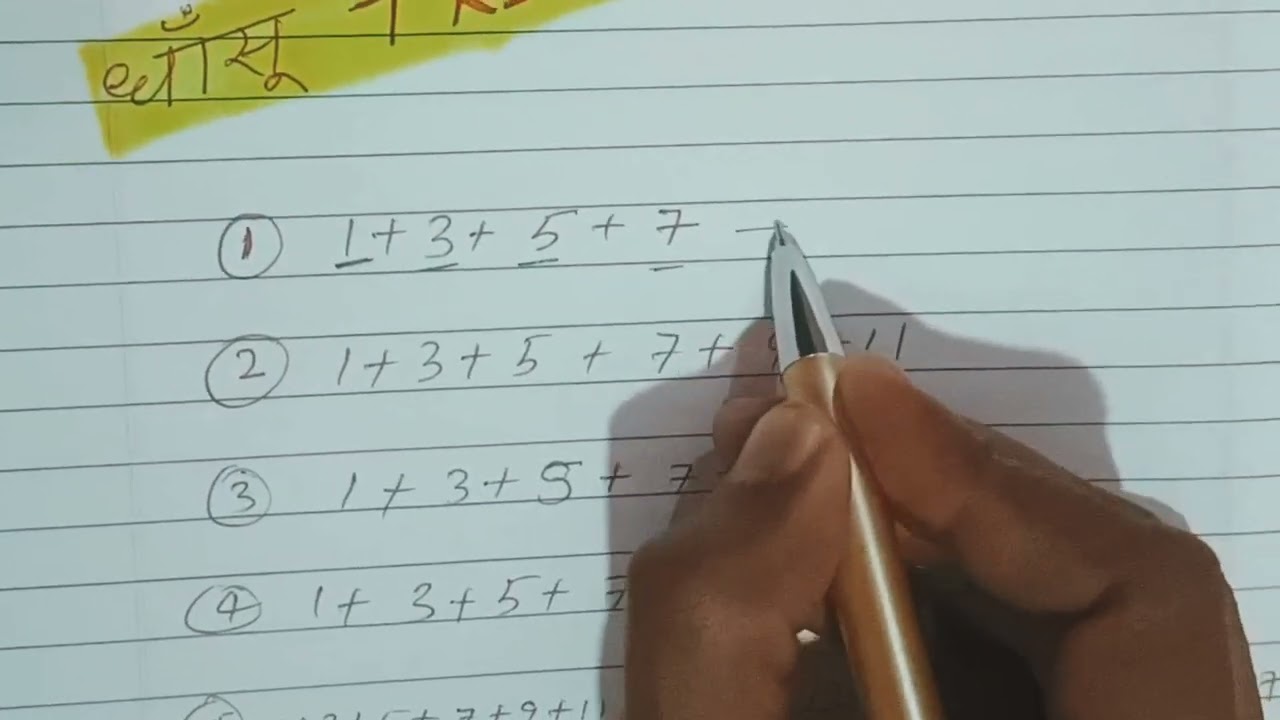 धाँसू
① 1 + 3 + 5 + 7 –
② 1 + 3 + 5 + 7 + 9 + 11
③ 1 + 3 + 5 + 7
④ 1 + 3 + 5 + 7
+ 7 + 9 + 11